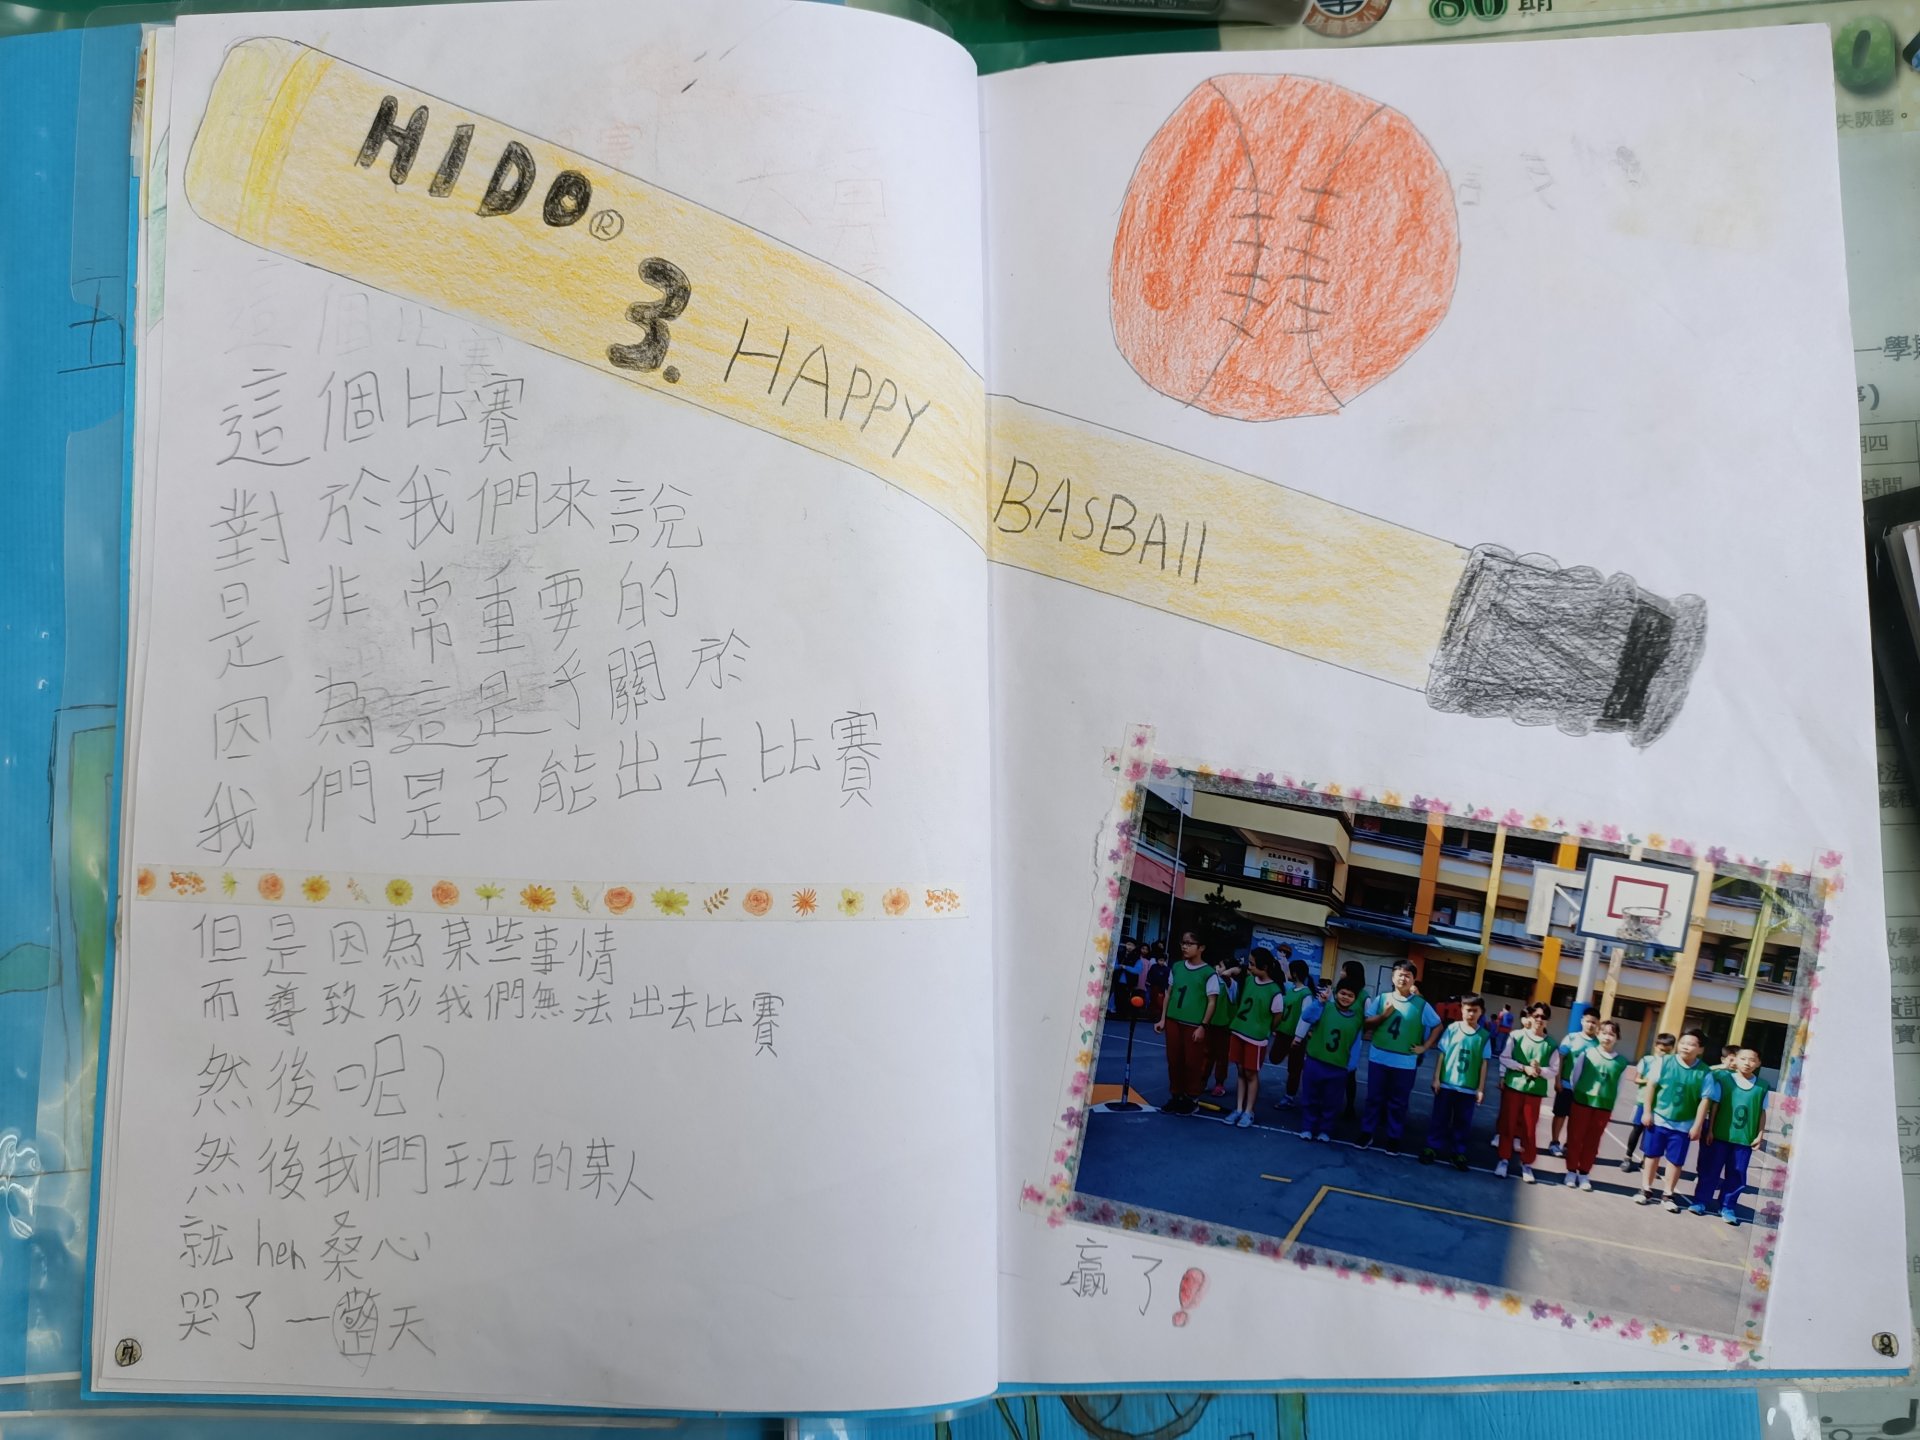 HIDO®
3. HAPPY BASBAll
這個比賽
對於我們來說
是非常重要的
因為這是乎關於
我們是否能出去比賽
但是因為某些事情
而導致於我們無法出去比賽
然後呢?
然後我們班的某人
就hen桑心
哭了一整天
7
1
2
3
4
5
8
9
贏了!
8
80期
失誤譜。
一學期
期四
時間